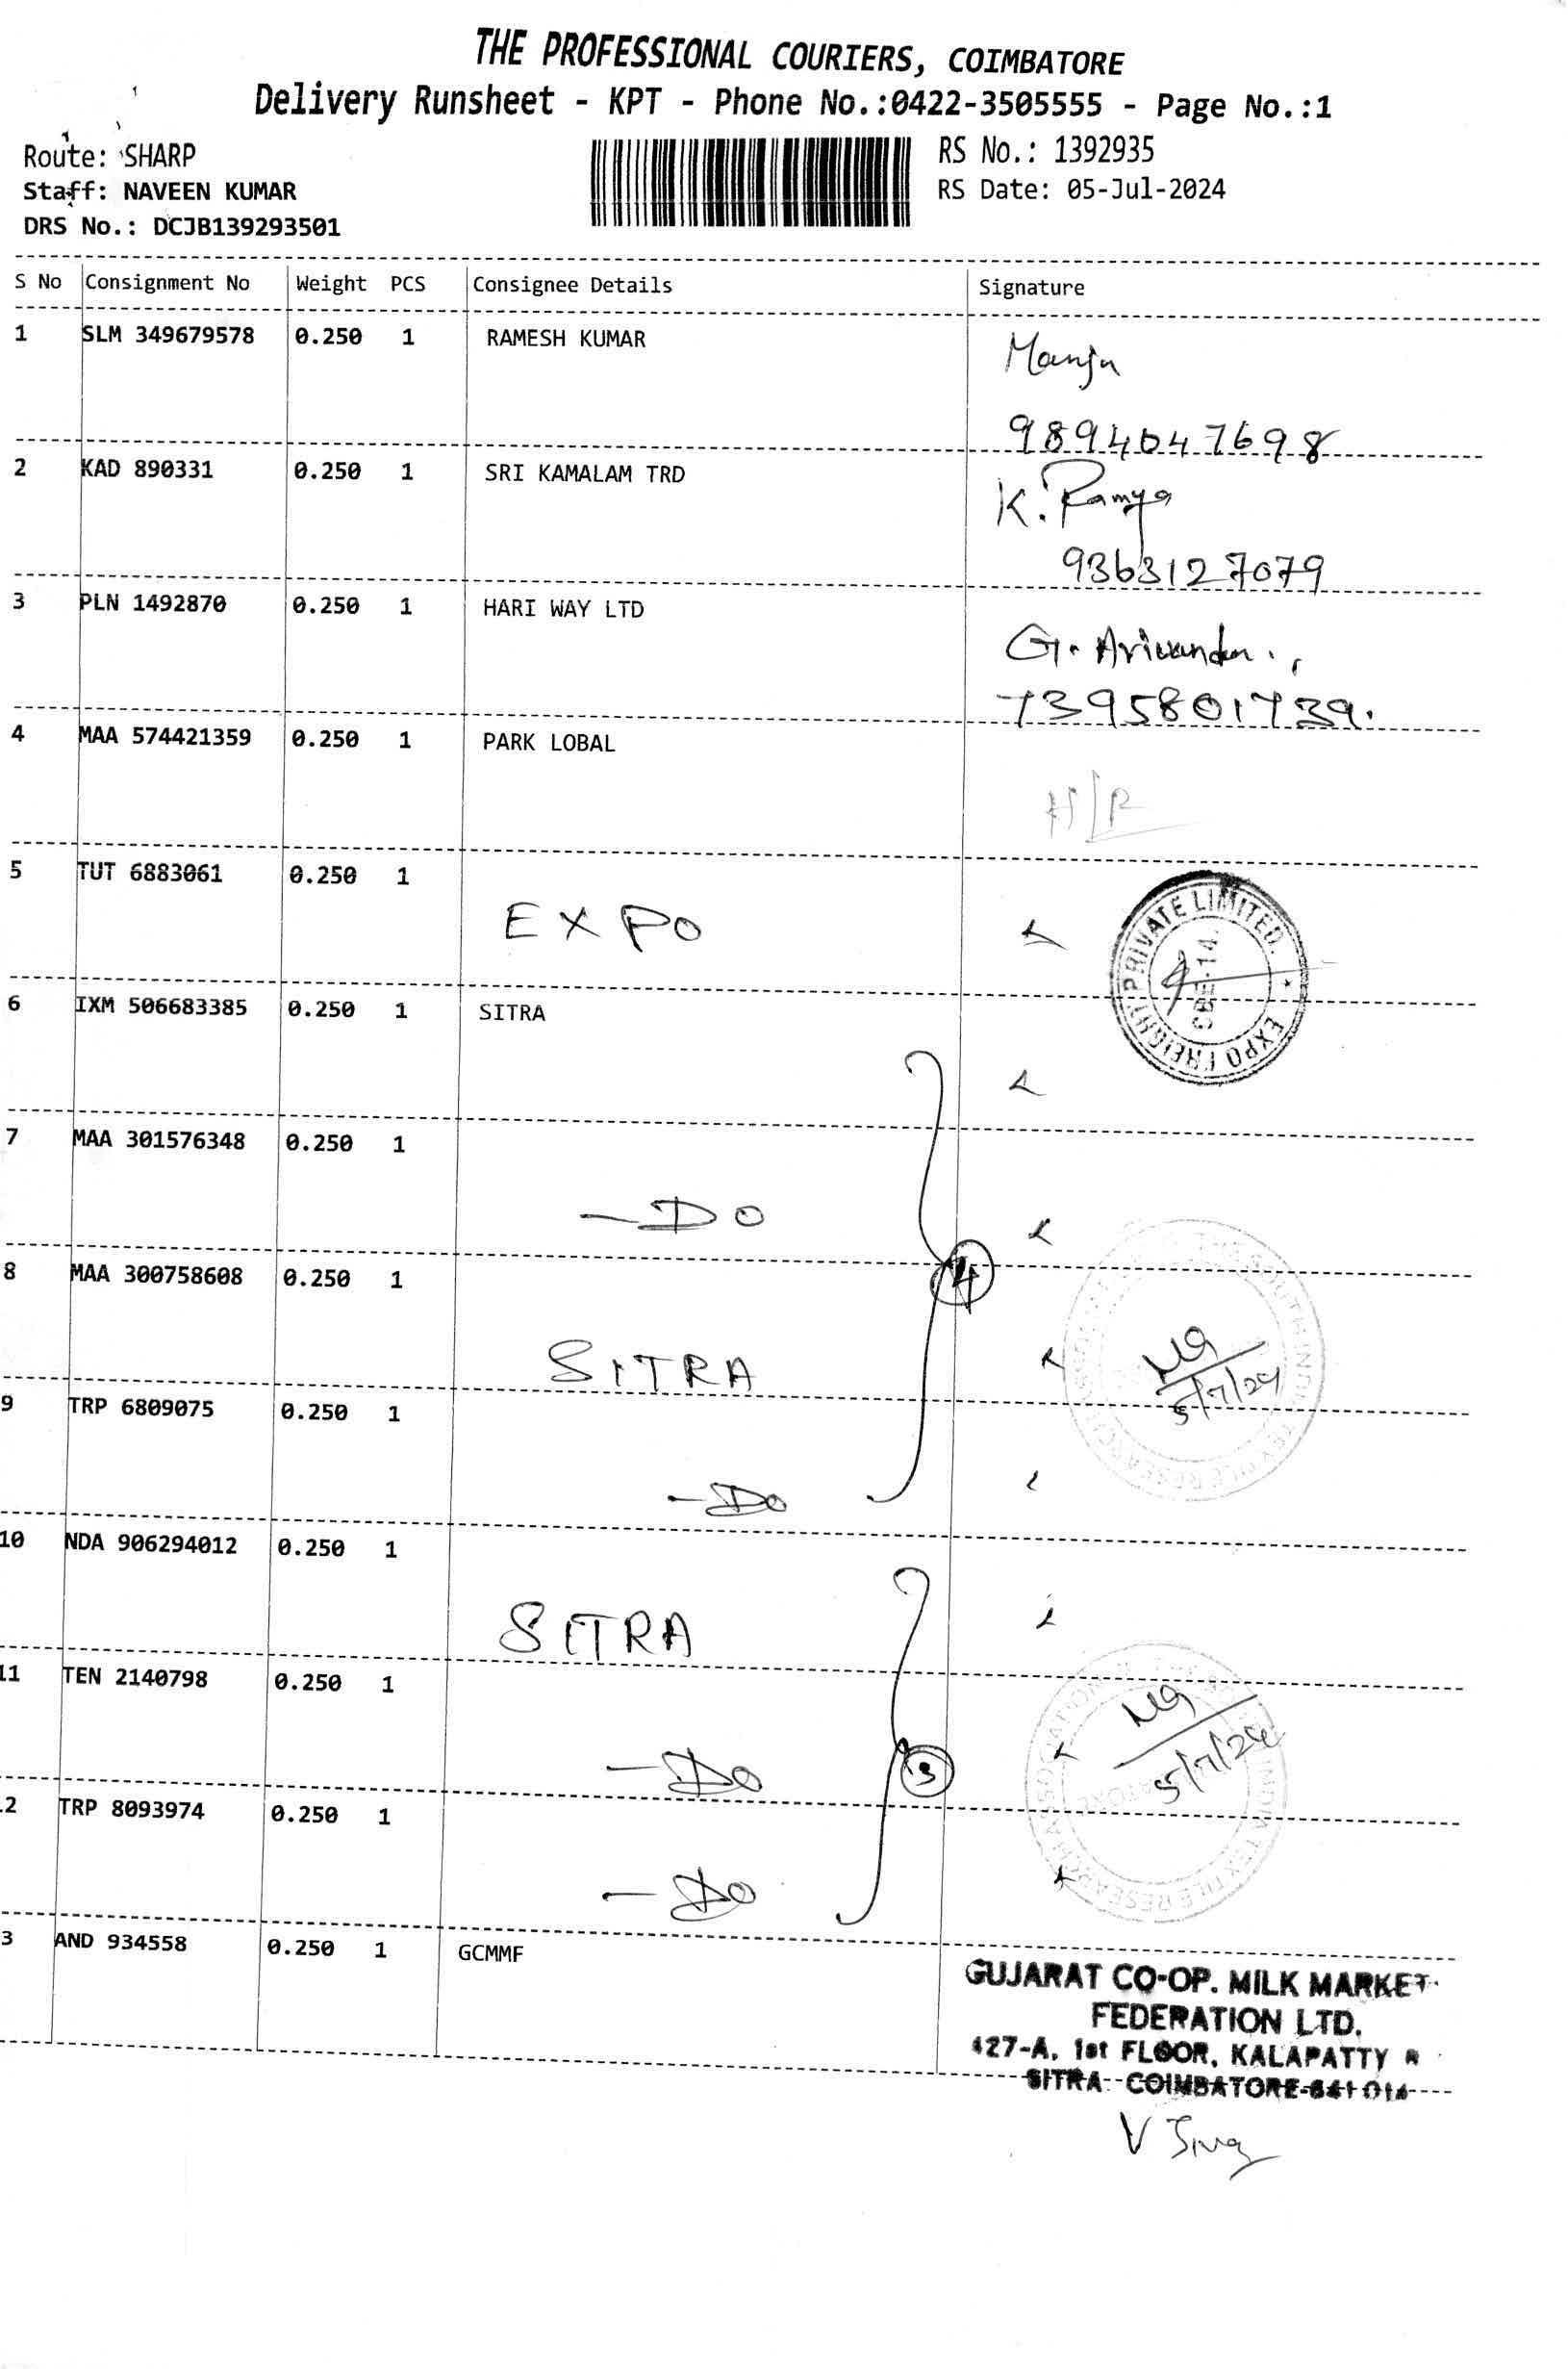 THE PROFESSIONAL COURIERS, COIMBATORE
Delivery Runsheet - KPT - Phone No.:0422-3505555 - Page No.:1
Route: SHARP
Staff: NAVEEN KUMAR
DRS No.: DCJB139293501
RS No.: 1392935
RS Date: 05-Jul-2024
S No Consignment No Weight PCS Consignee Details Signature
1 SLM 349679578 0.250 1 RAMESH KUMAR
Manju
9894047698
2 KAD 890331 0.250 1 SRI KAMALAM TRD
K. Ramya
9363127079
3 PLN 1492870 0.250 1 HARI WAY LTD
G.
7395801739.
4 MAA 574421359 0.250 1 PARK LOBAL
5 TUT 6883061 0.250 1
EXPO
EXPO FREIGHT PRIVATE LIMITED.
CBE-14.
6 IXM 506683385 0.250 1 SITRA
7 MAA 301576348 0.250 1
-Do
4
8 MAA 300758608 0.250 1
SITRA
5/7/24
9 TRP 6809075 0.250 1
-Do
10 NDA 906294012 0.250 1
SITRA
11 TEN 2140798 0.250 1
-Do
3
5/7/24
INDIA TEXTILE RESEARCH ASSOCIATION
2 TRP 8093974 0.250 1
-Do
3 AND 934558 0.250 1 GCMMF
GUJARAT CO-OP. MILK MARKET
FEDERATION LTD.
427-A, 1st FLOOR, KALAPATTY R
SITRA COIMBATORE-641 014